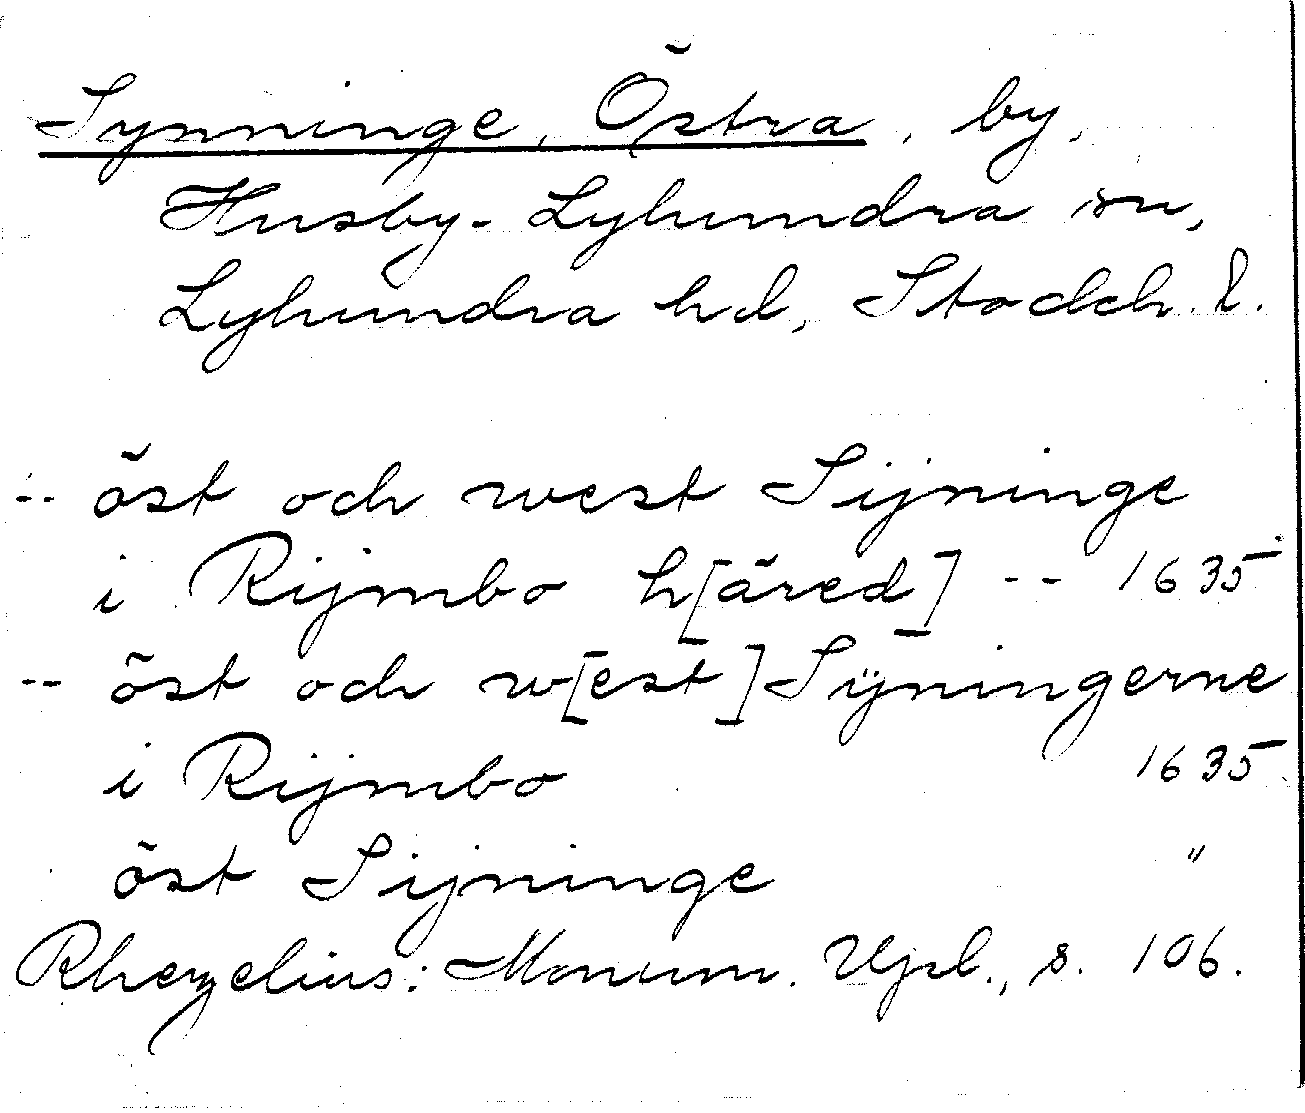 Synninge, Östra, by,
Husby-Lyhundra sn,
Lyhundra hd, Stockh. l.
-- öst och west Sijninge
i Rijmbo h[äred] -- 1635
-- öst och w[est] Sÿningerne
i Rijmbo 1635
öst Sijninge "
Rhezelius: Monum. Upl., s. 106.